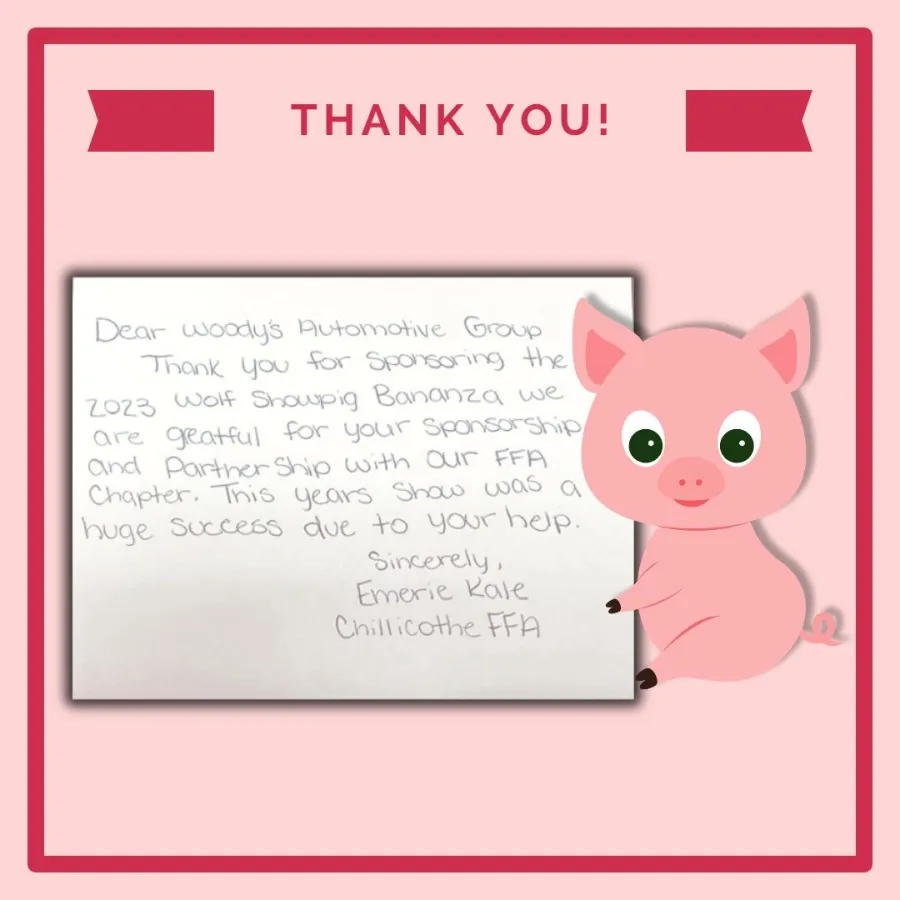 THANK YOU!
Dear Woody's Automotive Group
Thank you for sponsoring the
2023 Wolf Showpig Bananza we
are greatful for your sponsorship
and Partnership with our FFA
Chapter. This years show was a
huge success due to your help.
Sincerely,
Emerie Kale
Chillicothe FFA